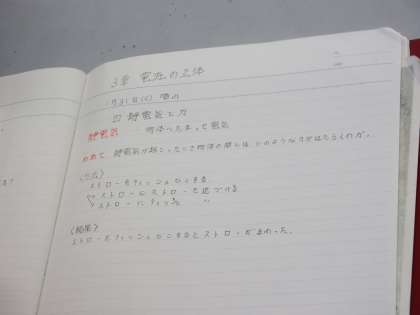 3章 電流の正体
1月31日(火) 晴れ
① 静電気と力
静電気 物体へたまった電気
めあて 静電気が起こったとき物体の間には、どのような力がはたらくのか。
(方法)
ストローをティッシュでこする
ストローにストローを近づける
ストローにティッシュ 〃
(結果)
ストローをティッシュでこするとストローがまわった。